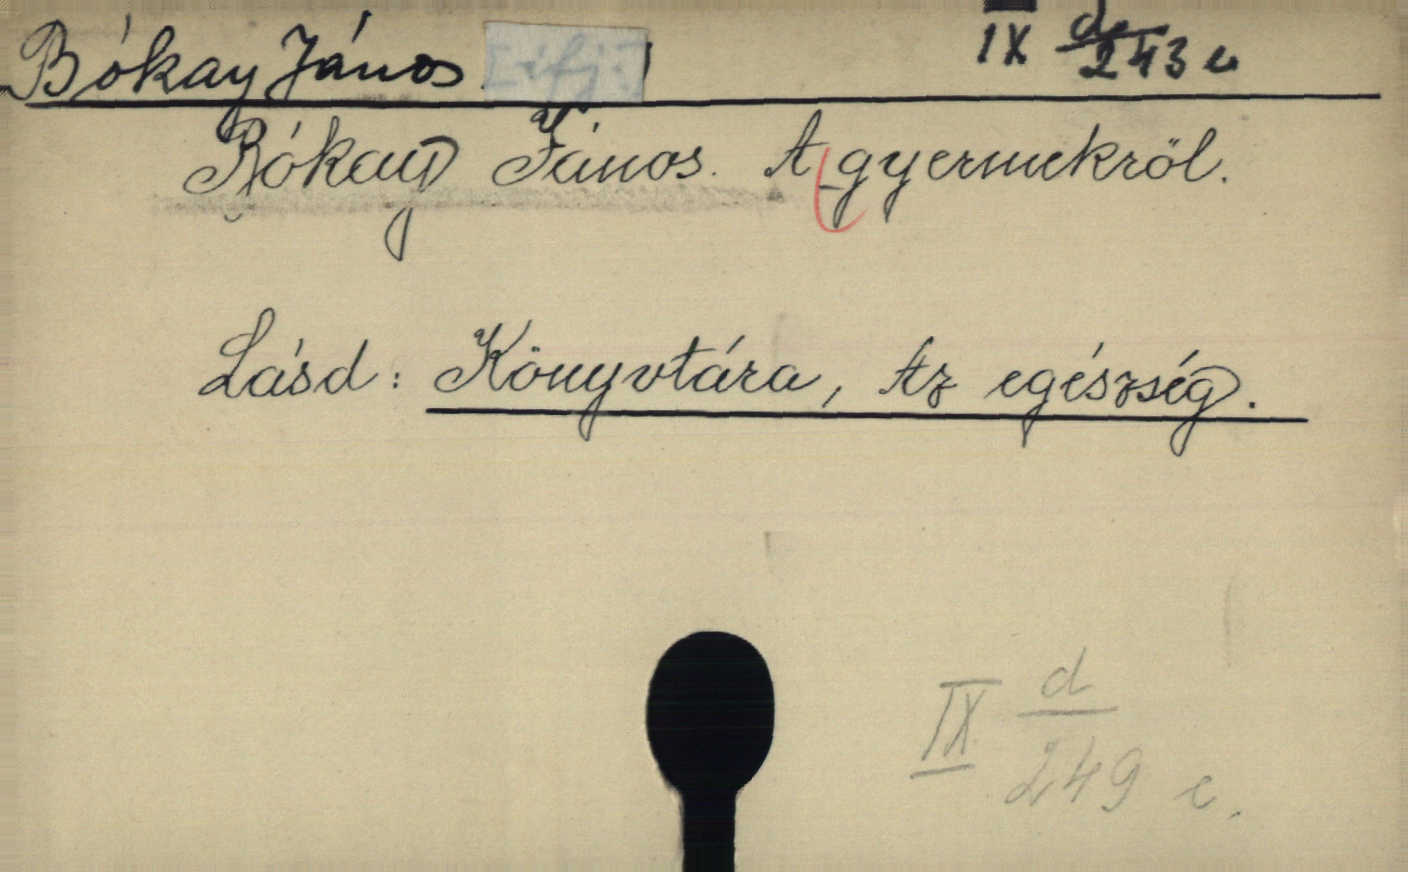 Bókay János [ifj.] IX d/243 c
Bókay János. A gyermekről.
Lásd: Könyvtára, Az egészség.
IX d/249 c.